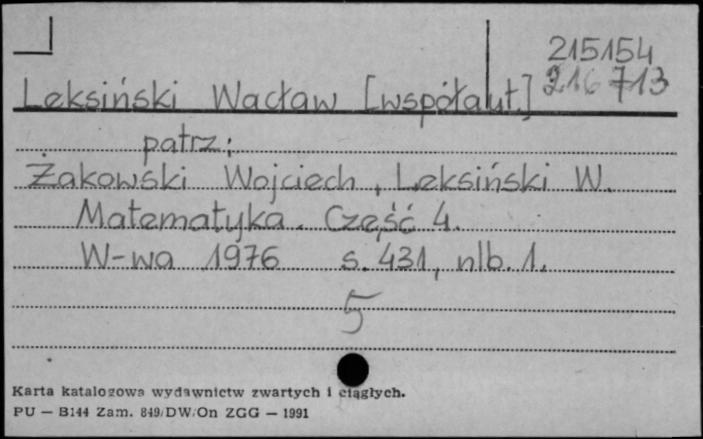 215154
216 713
Leksiński Wacław [współaut.]
patrz:
Żakowski Wojciech, Leksiński W.
Matematyka. Część 4.
W-wa 1976 s. 431, nlb. 1.
5
Karta katalogowa wydawnictw zwartych i ciągłych.
PU — B144 Zam. 849/DW/On ZGG — 1991